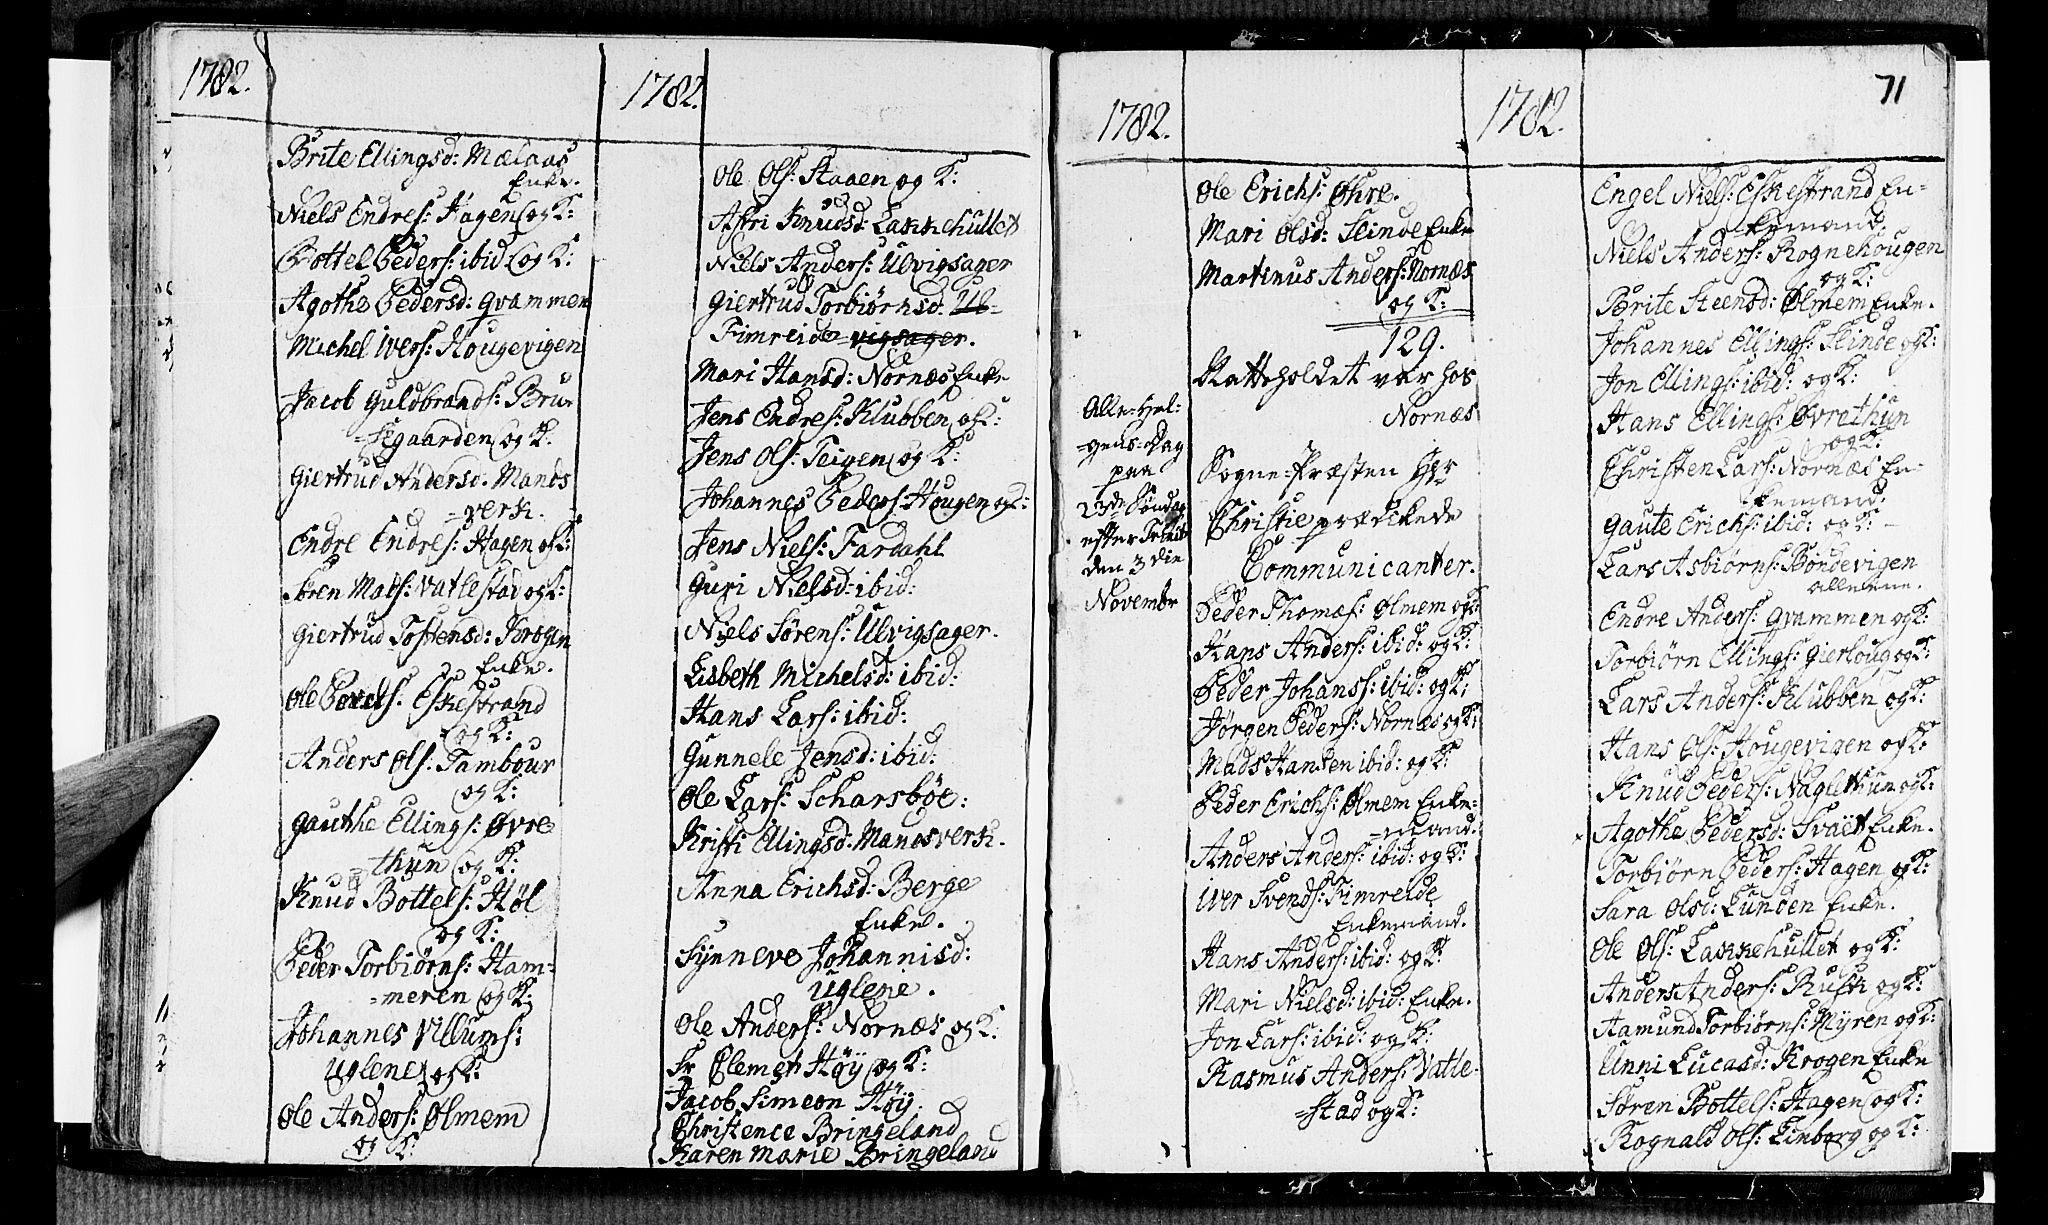 1782.
Brite Ellingsd: Mælaas
Enke.
Niels Endres: Hagen og K:
Bottel Peders: ibid og K:
Agothe Pedersd: Qvammen
Michel Ivers: Hougevigen
Jacob Guldbrands: Bru-
=segaarden og K.
Giertrud Andersd. Mands
=verk.
Endre Endres: Hagen og K:
Søren Mads: Vatlestad og K:
Giertrud Tostensd: Krogen
Enke.
Ole Povels. Eskestrand
og K:
Anders Ols. Tambour
og K:
Gauthe Ellings: Øvre
=thun og K:
Knud Bottels: Høl
og K:
Peder Torbiørns: Ham=
=meren og K:
Johannes Villums:
Uglene og K:
Ole Anders: Ølmem
og K:
1782.
Ole Ols: Staaen og K:
Astri Knudsd: Lakkehullet
Niels Anders: Ulvigsager
Giertrud Torbiørnsd. Ul-
Fimreide vigsager.
Mari Hansd: Nornæs Enke
Jens Endres: Klubben og K:
Jens Ols: Teigen og K:
Johannes Peders: Hougen og K:
Jens Niels: Fardahl
Guri Nielsd: ibid:
Niels Sørens: Ulvigsager.
Lisbeth Michelsd: ibid:
Hans Lars: ibid:
Gunnele Jensd: ibid:
Ole Lars: Scharsbøe:
Kristi Ellingsd: Mandsverk.
Anna Erichsd: Berge
Enke.
Synneve Johannisd:
Uglene.
Ole Anders: Nornæs og K:
Sr Clemet Høy og K:
Jacob Simeon Høy.
Christence Bringeland
Karen Marie Bringeland
1782.
Ole Erichs: Øhre.
Mari Olsd: Slinde Enke
Martinus Anders: Nornæs
og K:
129.
Natteholdet var hos
Nornæs
Alle=Hel-
=gens=Dag
paa
23de Søndag
efter Trinit:
den 3die
Novembr
Sogne=Præsten Hr
Christie prædikede
Communicanter.
Peder Thomæs: Ølmem og K:
Hans Anders: ibid: og K:
Peder Johanss: ibid: og K:
Jørgen Peders: Nornæs og K:
Mads Hansen ibid: og K:
Peder Erichs: Ølmem Enke=
=mand.
Anders Anders: ibid: og K:
Iver Svends: Fimreide
Enkemand.
Hans Anders: ibid: og K:
Mari Nielsd: ibid: Enke.
Jon Lars: ibid: og K:
Rasmus Anders: Vatle-
=stad og K:
1782.
71
Engel Niels: Eskestrand En=
kemand.
Niels Anders: Rognehougen
og K:
Brite Steensd: Ølmem Enke.
Johannes Ellings: Slinde og K:
Jon Ellings: ibid: og K:
Hans Ellings: Øvrethun
og K:
Christen Lars: Nornæs En-
kemand.
Gaute Erichs: ibid: og K:
Lars Asbiørns: Bondevigen
alleene.
Endre Anders: Qvammen og K:
Torbiørn Ellings: Gierloug og K:
Lars Anders: Klubben og K:
Hans Ols: Hougevigen og K:
Knud Peders: Naglethun og K:
Agothe Pedersd: Svaët Enke.
Torbiørn Peders: Hagen og K:
Sara Olsd: Lunden Enke.
Ole Ols: Lakkehullet og K:
Anders Anders: Rusk og K:
Aamund Torbiørns: Myren og K:
Unni Lucasd: Krogen Enke
Søren Bottels: Hagen og K:
Rognald Ols: Linborg og K: